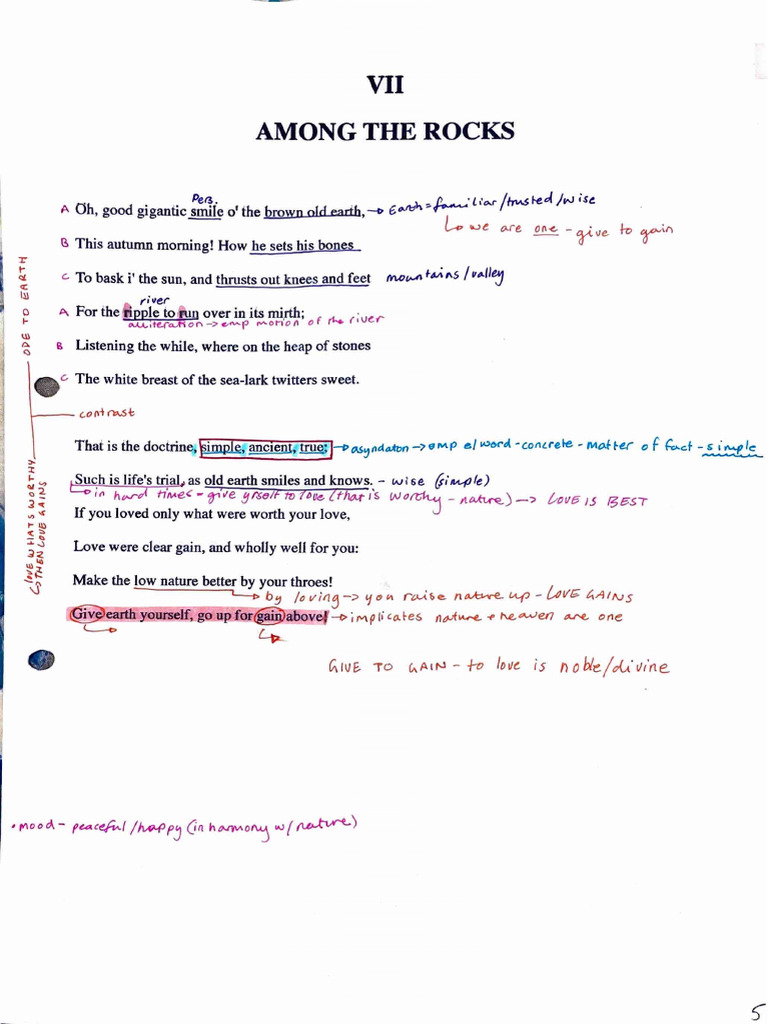 VII
AMONG THE ROCKS
Pers.
A Oh, good gigantic smile o' the brown old earth, → Earth = familiar/trusted/wise
↳ we are one - give to gain
B This autumn morning! How he sets his bones
C To bask i' the sun, and thrusts out knees and feet mountains/valley
river
A For the ripple to run over in its mirth;
alliteration → emp motion of the river
B Listening the while, where on the heap of stones
C The white breast of the sea-lark twitters sweet.
ODE TO EARTH
contrast
That is the doctrine, simple, ancient, true; → asyndaton → emp e/word - concrete - matter of fact - simple
Such is life's trial, as old earth smiles and knows. - wise (simple)
↳ in hard times - give yrself to love (that is worthy - nature) → LOVE IS BEST
If you loved only what were worth your love,
Love were clear gain, and wholly well for you:
Make the low nature better by your throes!
↳ by loving → you raise nature up - LOVE GAINS
Give earth yourself, go up for gain above! → implicates nature + heaven are one
LOVE WHATS WORTHY
↳ THEN LOVE GAINS
GIVE TO GAIN - to love is noble/divine
• mood - peaceful/happy (in harmony w/ nature)
5